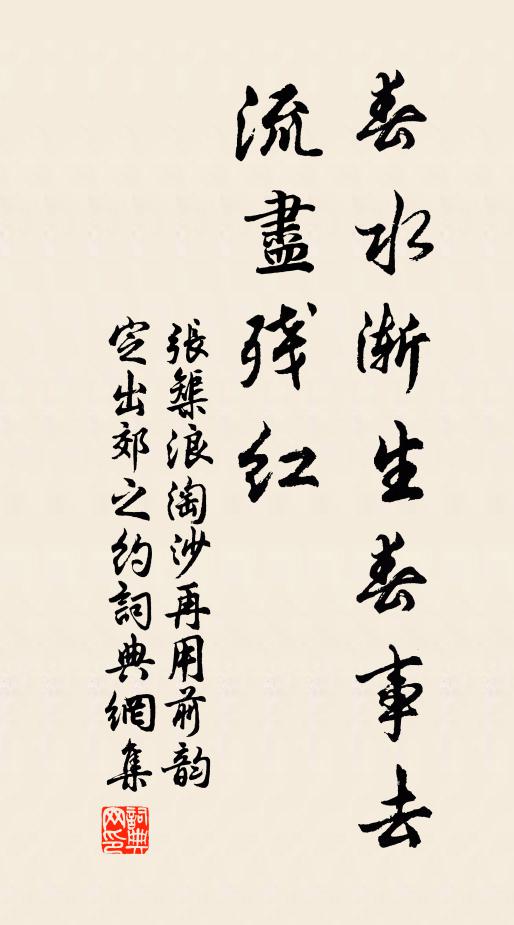 春水漸生春事去
流盡残紅
張榘浪淘沙再用前韵
定出郊之约詞典網集
詞典网印